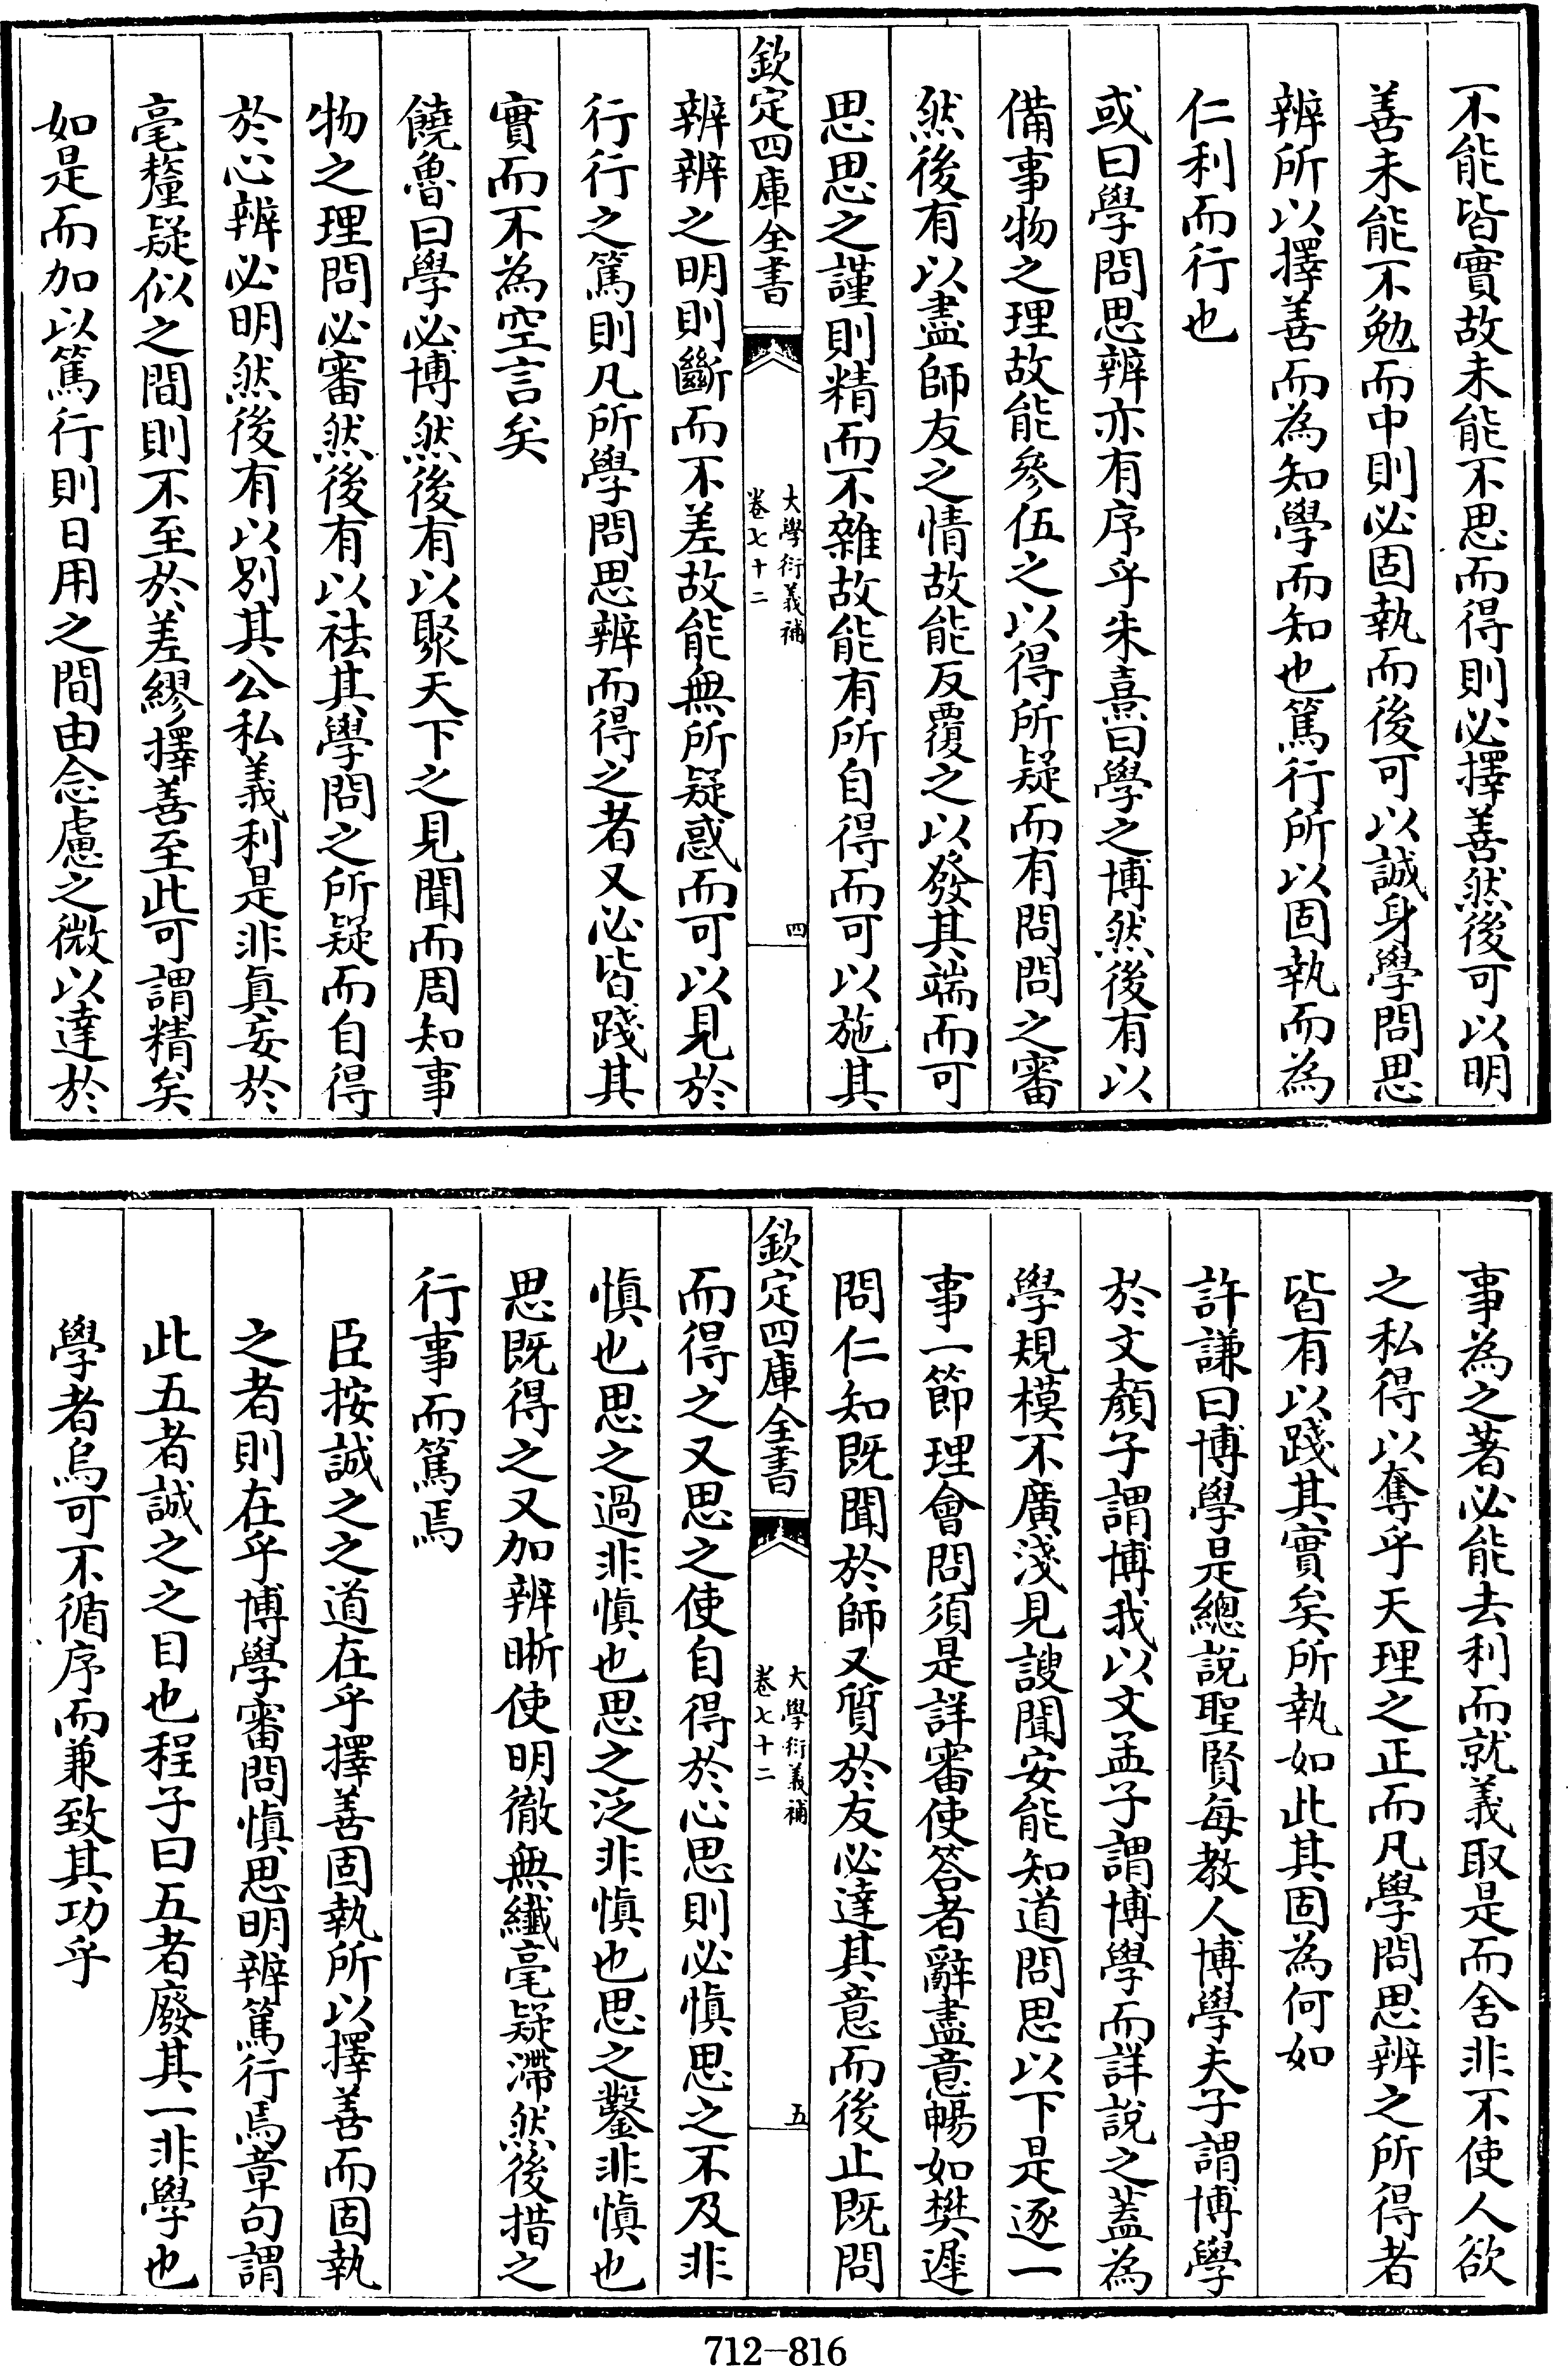 不能皆實故未能不思而得則必擇善然後可以明
善未能不勉而中則必固執而後可以誠身學問思
辨所以擇善而為知學而知也篤行所以固執而為
仁利而行也
或曰學問思辨亦有序乎朱熹曰學之博然後有以
備事物之理故能參伍之以得所疑而有問問之審
然後有以盡師友之情故能反覆之以發其端而可
思思之謹則精而不雜故能有所自得而可以施其
欽定四庫全書
大學衍義補
卷七十二
四
辨辨之明則斷而不差故能無所疑惑而可以見於
行行之篤則凡所學問思辨而得之者又必皆踐其
實而不為空言矣
饒魯曰學必博然後有以聚天下之見聞而周知事
物之理問必審然後有以祛其學問之所疑而自得
於心辨必明然後有以別其公私義利是非眞妄於
毫釐疑似之間則不至於差繆擇善至此可謂精矣
如是而加以篤行則日用之間由念慮之微以達於
事為之著必能去利而就義取是而舍非不使人欲
之私得以奪乎天理之正而凡學問思辨之所得者
皆有以踐其實矣所執如此其固為何如
許謙曰博學是總說聖賢每教人博學夫子謂博學
於文顏子謂博我以文孟子謂博學而詳說之蓋為
學規模不廣淺見謏聞安能知道問思以下是逐一
事一節理會問須是詳審使答者辭盡意暢如樊遲
問仁知既聞於師又質於友必達其意而後止既問
欽定四庫全書
大學衍義補
卷七十二
五
而得之又思之使自得於心思則必愼思之不及非
愼也思之過非愼也思之泛非愼也思之鑿非愼也
思既得之又加辨晰使明徹無纖毫疑滯然後措之
行事而篤焉
臣按誠之之道在乎擇善固執所以擇善而固執
之者則在乎博學審問愼思明辨篤行焉章句謂
此五者誠之之目也程子曰五者廢其一非學也
學者烏可不循序而兼致其功乎
712-816